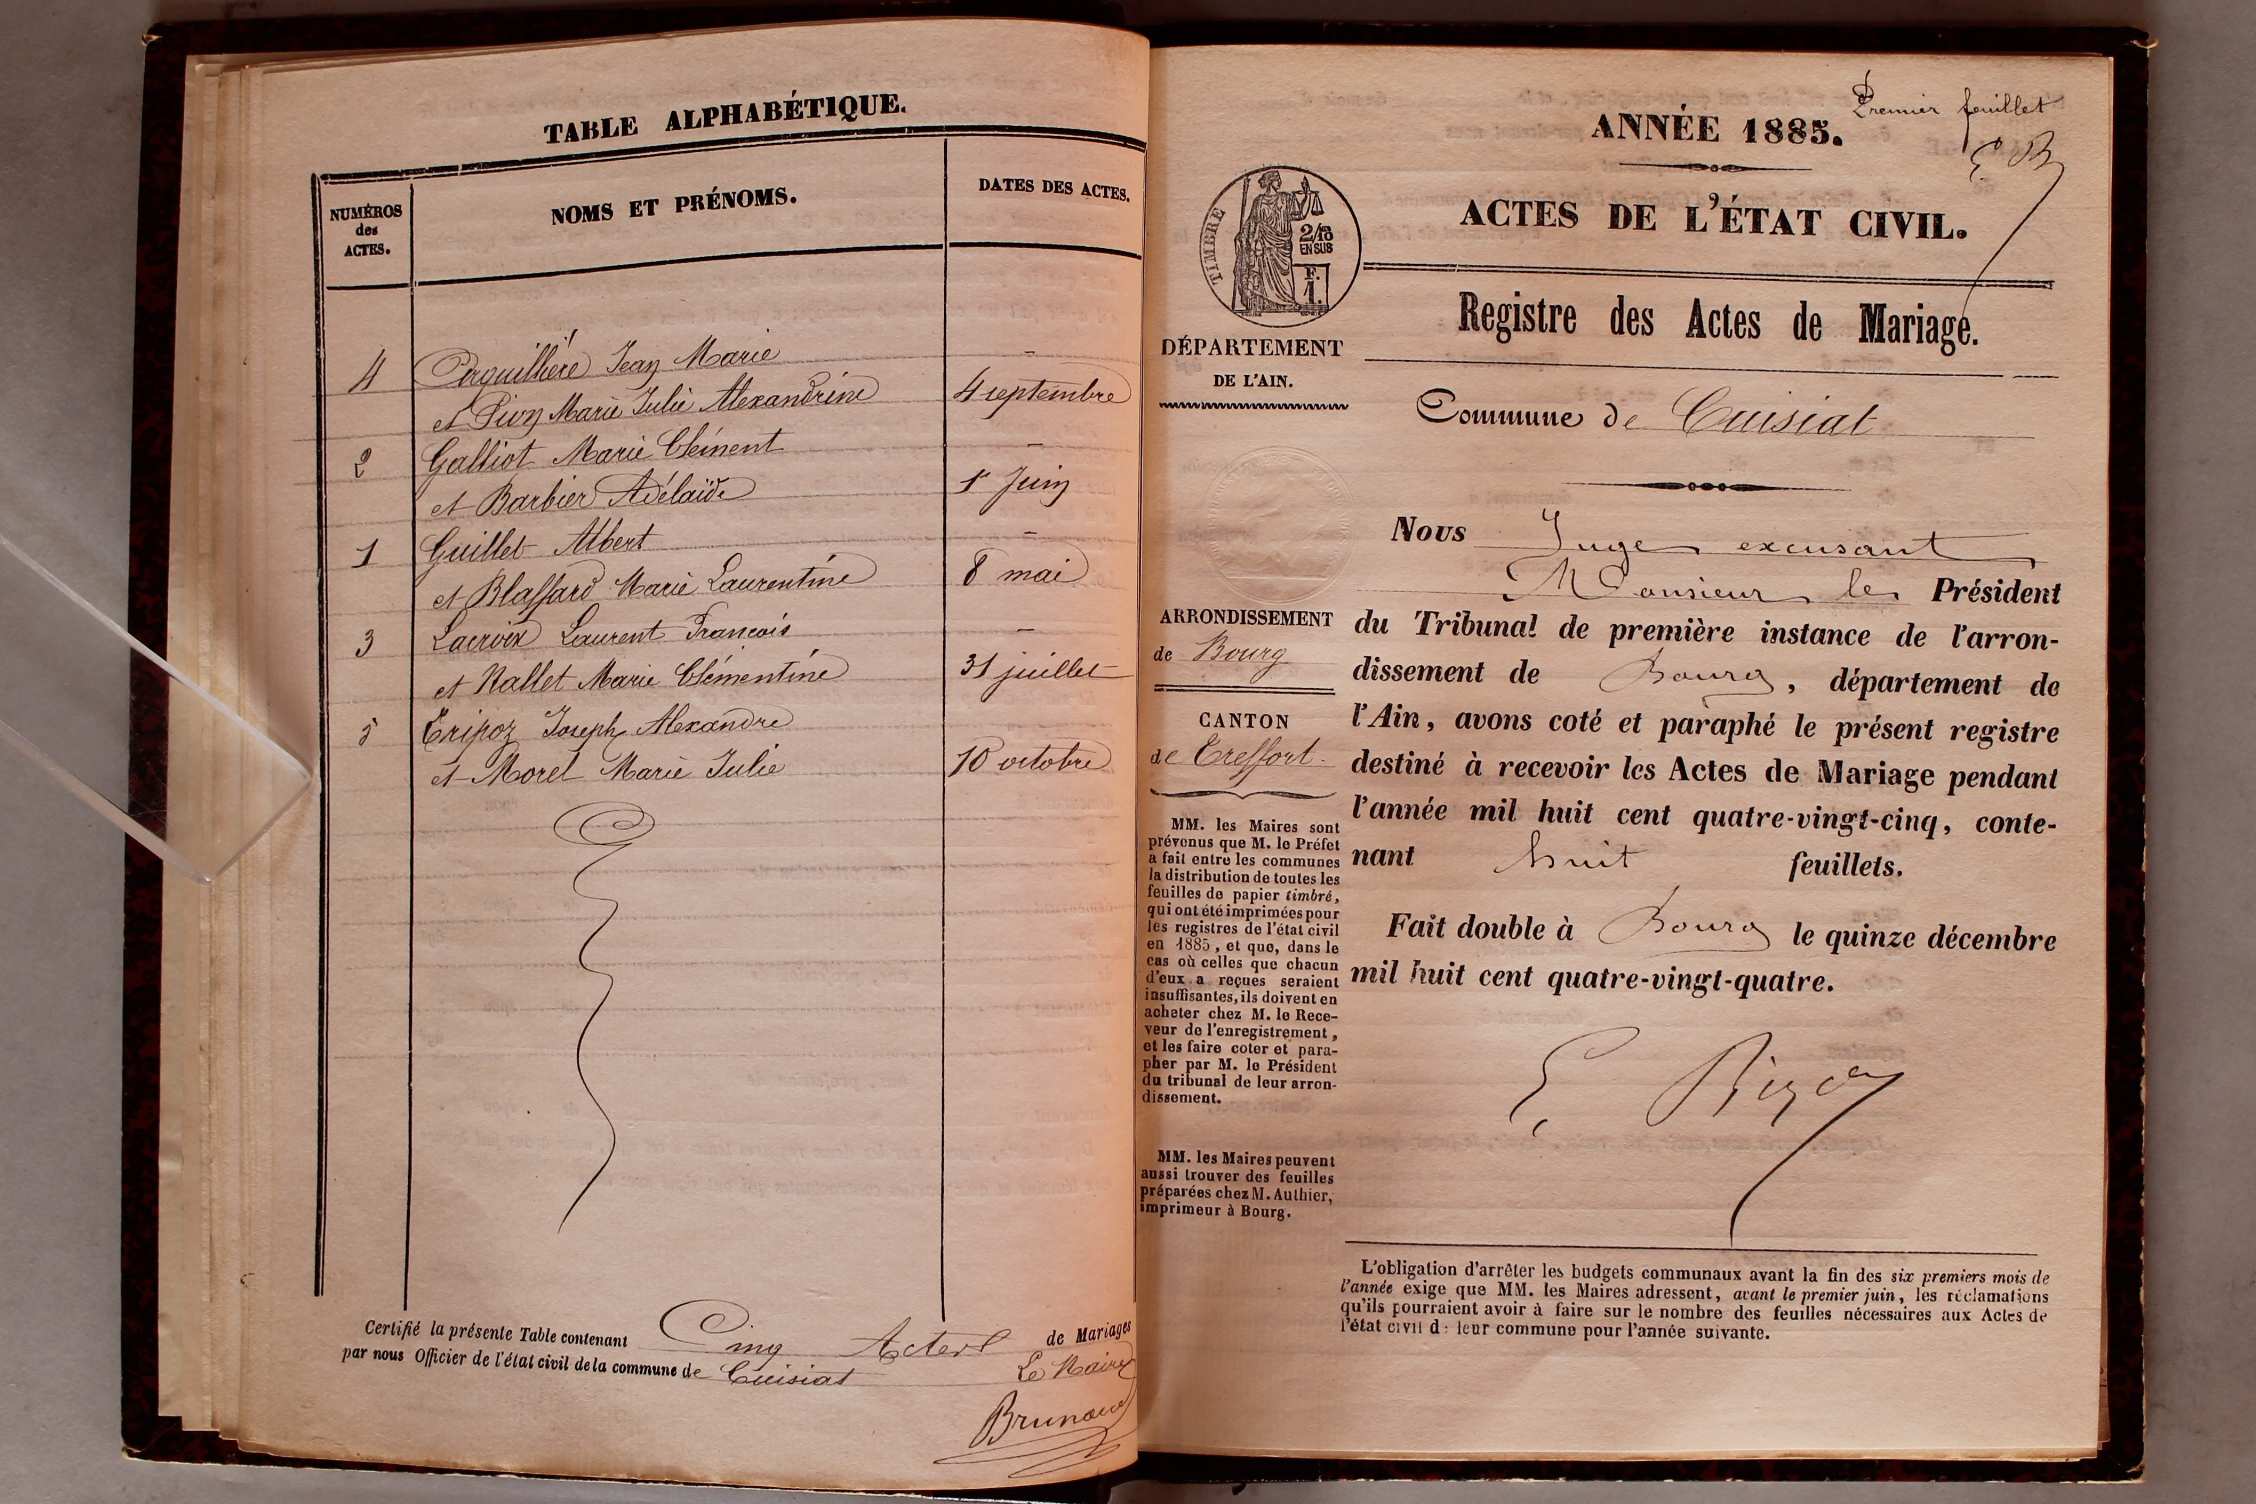 TABLE ALPHABÉTIQUE.
NUMÉROS
des
ACTES.
NOMS ET PRÉNOMS.
DATES DES ACTES.
4 Jean Marie
et Pivy Marie Julie Alexandrine 4 septembre
2 Galliot Marie Clément
et Barbier Adélaïde 1r Juin
1 Guillet Albert
et Blaffard Marie Laurentine 8 mai
3 Lacroix Laurent François
et Nallet Marie Clémentine 31 juillet
5 Tripoz Joseph Alexandre
et Morel Marie Julie 10 octobre
Certifié la présente Table contenant Cinq Actes de Mariages
par nous Officier de l'état civil de la commune de Cuisiat Le Maire
ANNÉE 1885.
Premier feuillet
E B
ACTES DE L'ÉTAT CIVIL.
TIMBRE
2/10
EN SUS
F.
1.
Registre des Actes de Mariage.
DÉPARTEMENT
DE L'AIN.
Commune de Cuisiat
ARRONDISSEMENT
de Bourg
CANTON
de Treffort
MM. les Maires sont
prévenus que M. le Préfet
a fait entre les communes
la distribution de toutes les
feuilles de papier timbré,
qui ont été imprimées pour
les registres de l'état civil
en 1885, et que, dans le
cas où celles que chacun
d'eux a reçues seraient
insuffisantes, ils doivent en
acheter chez M. le Rece-
veur de l'enregistrement,
et les faire coter et para-
pher par M. le Président
du tribunal de leur arron-
dissement.
MM. les Maires peuvent
aussi trouver des feuilles
préparées chez M. Authier,
imprimeur à Bourg.
Nous Juge excusant
Monsieur le Président
du Tribunal de première instance de l'arron-
dissement de Bourg, département de
l'Ain, avons coté et paraphé le présent registre
destiné à recevoir les Actes de Mariage pendant
l'année mil huit cent quatre-vingt-cinq, conte-
nant huit feuillets.
Fait double à Bourg le quinze décembre
mil huit cent quatre-vingt-quatre.
L'obligation d'arrêter les budgets communaux avant la fin des six premiers mois de
l'année exige que MM. les Maires adressent, avant le premier juin, les réclamations
qu'ils pourraient avoir à faire sur le nombre des feuilles nécessaires aux Actes de
l'état civil de leur commune pour l'année suivante.